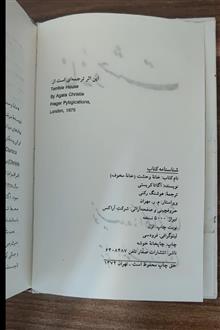 این اثر ترجمه‌ای است از:
Terrible House
By Agata Christie
Hager Pybgications,
London, 1975
شناسنامه کتاب
نام کتاب: خانهٔ وحشت (خانهٔ مخوف)
نویسنده: آگاتا کریستی
ترجمهٔ: هوشنگ رکنی
ویراستار: م. ر. تهران
حروفچینی و صفحه‌آرائی: شرکت آراکس
تیراژ: ۵۰۰۰ نسخه
نوبت چاپ: اول
لیتوگرافی: فردوسی
چاپ: چاپخانهٔ خوشه
ناشر: انتشارات صفار تلفن: ۶۴۰۸۴۸۷
حق چاپ محفوظ است ـ تهران ۱۳۷۲